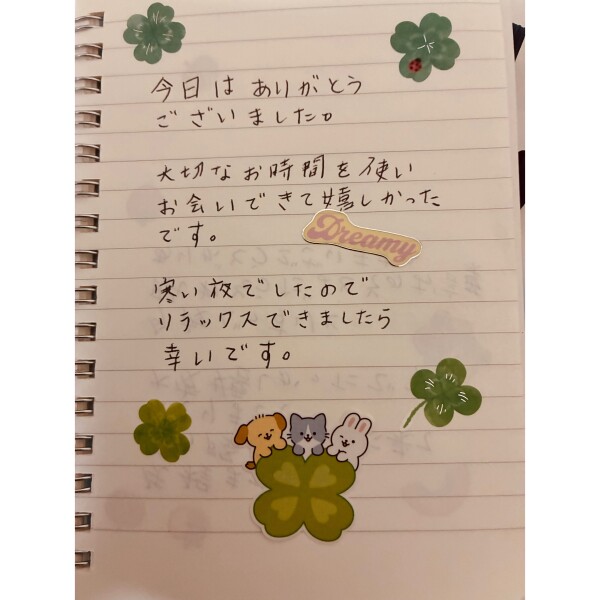 今日は ありがとう
ございました。
大切なお時間を使い
お会いできて嬉しかった
です。
Dreamy
寒い夜でしたので
リラックスできましたら
幸いです。